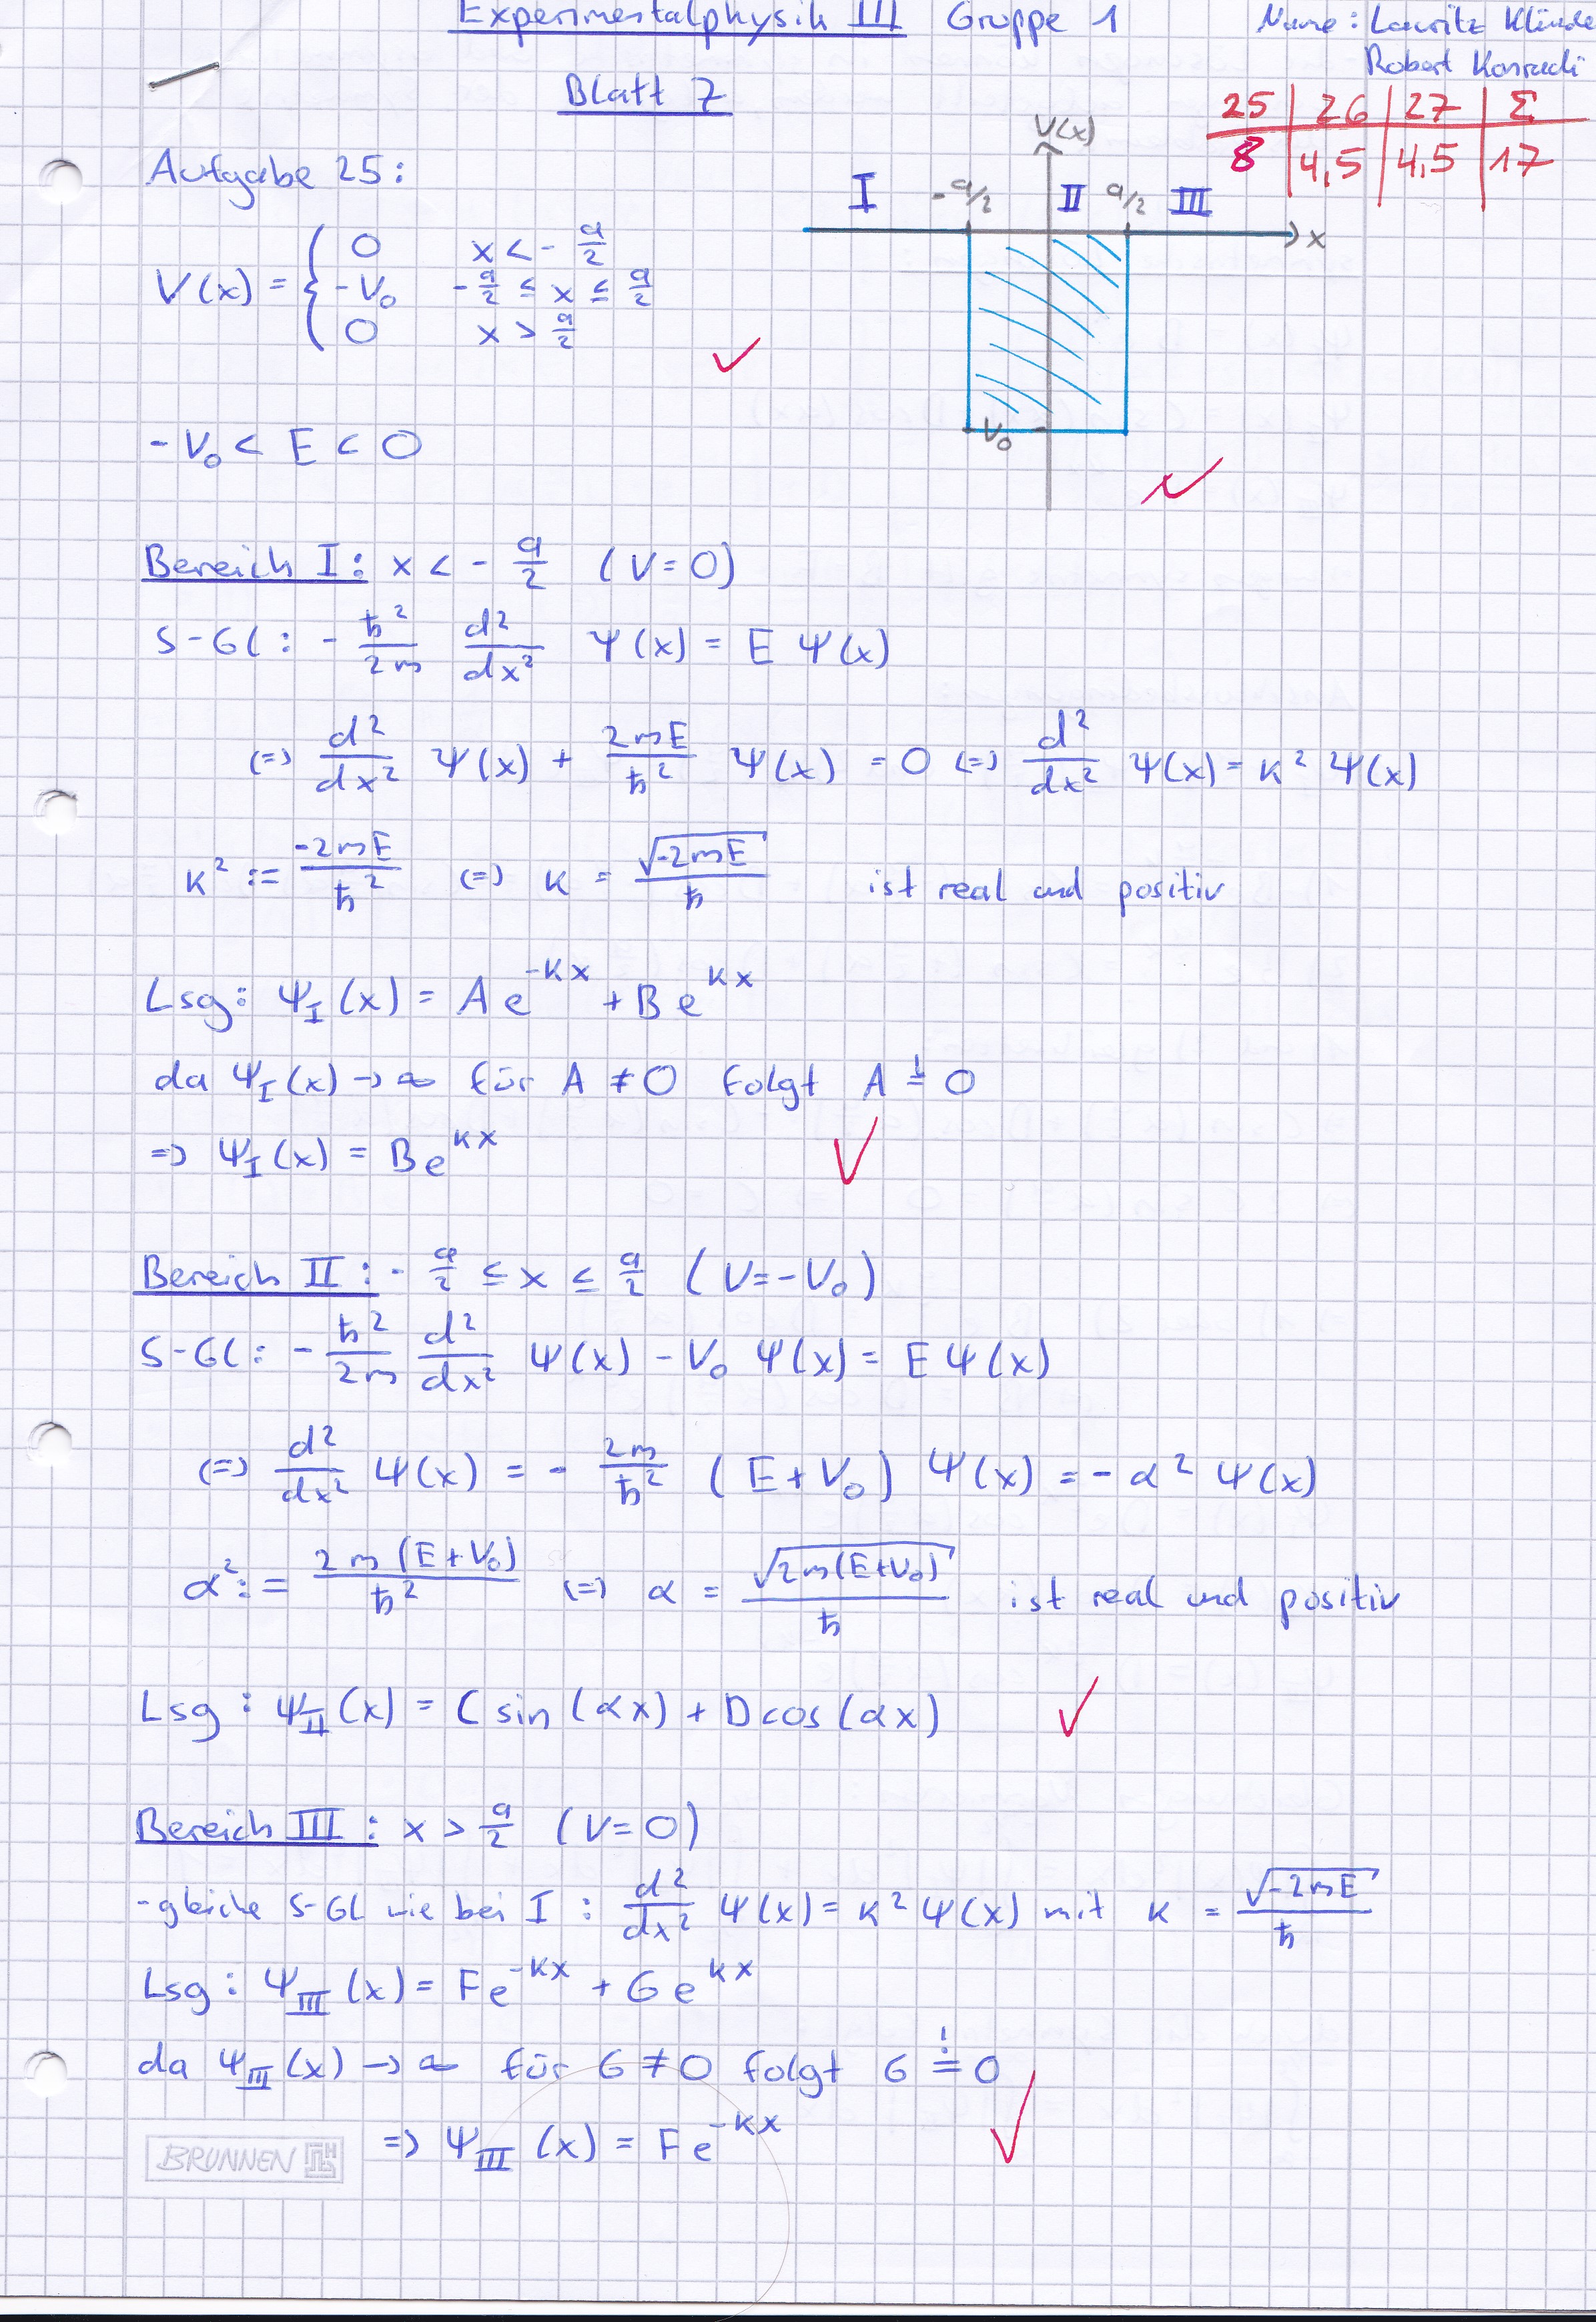 Experimentalphysik III Gruppe 1 Name: Lauritz Klünde
Robert Konradi
Blatt 7
25 | 26 | 27 | Σ
8 | 4,5 | 4,5 | 17
Aufgabe 25:
V(x)
I -a/2 II a/2 III
x
V(x) = { 0 x < - a/2
-V₀ -a/2 ≤ x ≤ a/2
0 x > a/2
-V₀
-V₀ < E < 0
Bereich I: x < - a/2 (V=0)
S-Gl: - ħ²/2m d²/dx² Ψ(x) = E Ψ(x)
(=) d²/dx² Ψ(x) + 2mE/ħ² Ψ(x) = 0 (=) d²/dx² Ψ(x) = κ² Ψ(x)
κ² := -2mE/ħ² (=) κ = √-2mE/ħ ist real und positiv
Lsg: Ψ_I(x) = A e^-κx + B e^κx
da Ψ_I(x) → ∞ für A ≠ 0 folgt A != 0
=> Ψ_I(x) = B e^κx
Bereich II: - a/2 ≤ x ≤ a/2 (V=-V₀)
S-Gl: - ħ²/2m d²/dx² Ψ(x) - V₀ Ψ(x) = E Ψ(x)
(=) d²/dx² Ψ(x) = - 2m/ħ² (E+V₀) Ψ(x) = - α² Ψ(x)
α² := 2m(E+V₀)/ħ² (=) α = √2m(E+V₀)/ħ ist real und positiv
Lsg: Ψ_II(x) = C sin(αx) + D cos(αx)
Bereich III: x > a/2 (V=0)
-gleiche S-Gl wie bei I: d²/dx² Ψ(x) = κ² Ψ(x) mit κ = √-2mE/ħ
Lsg: Ψ_III(x) = F e^-κx + G e^κx
da Ψ_III(x) → ∞ für G ≠ 0 folgt G != 0
=> Ψ_III(x) = F e^-κx
BRUNNEN